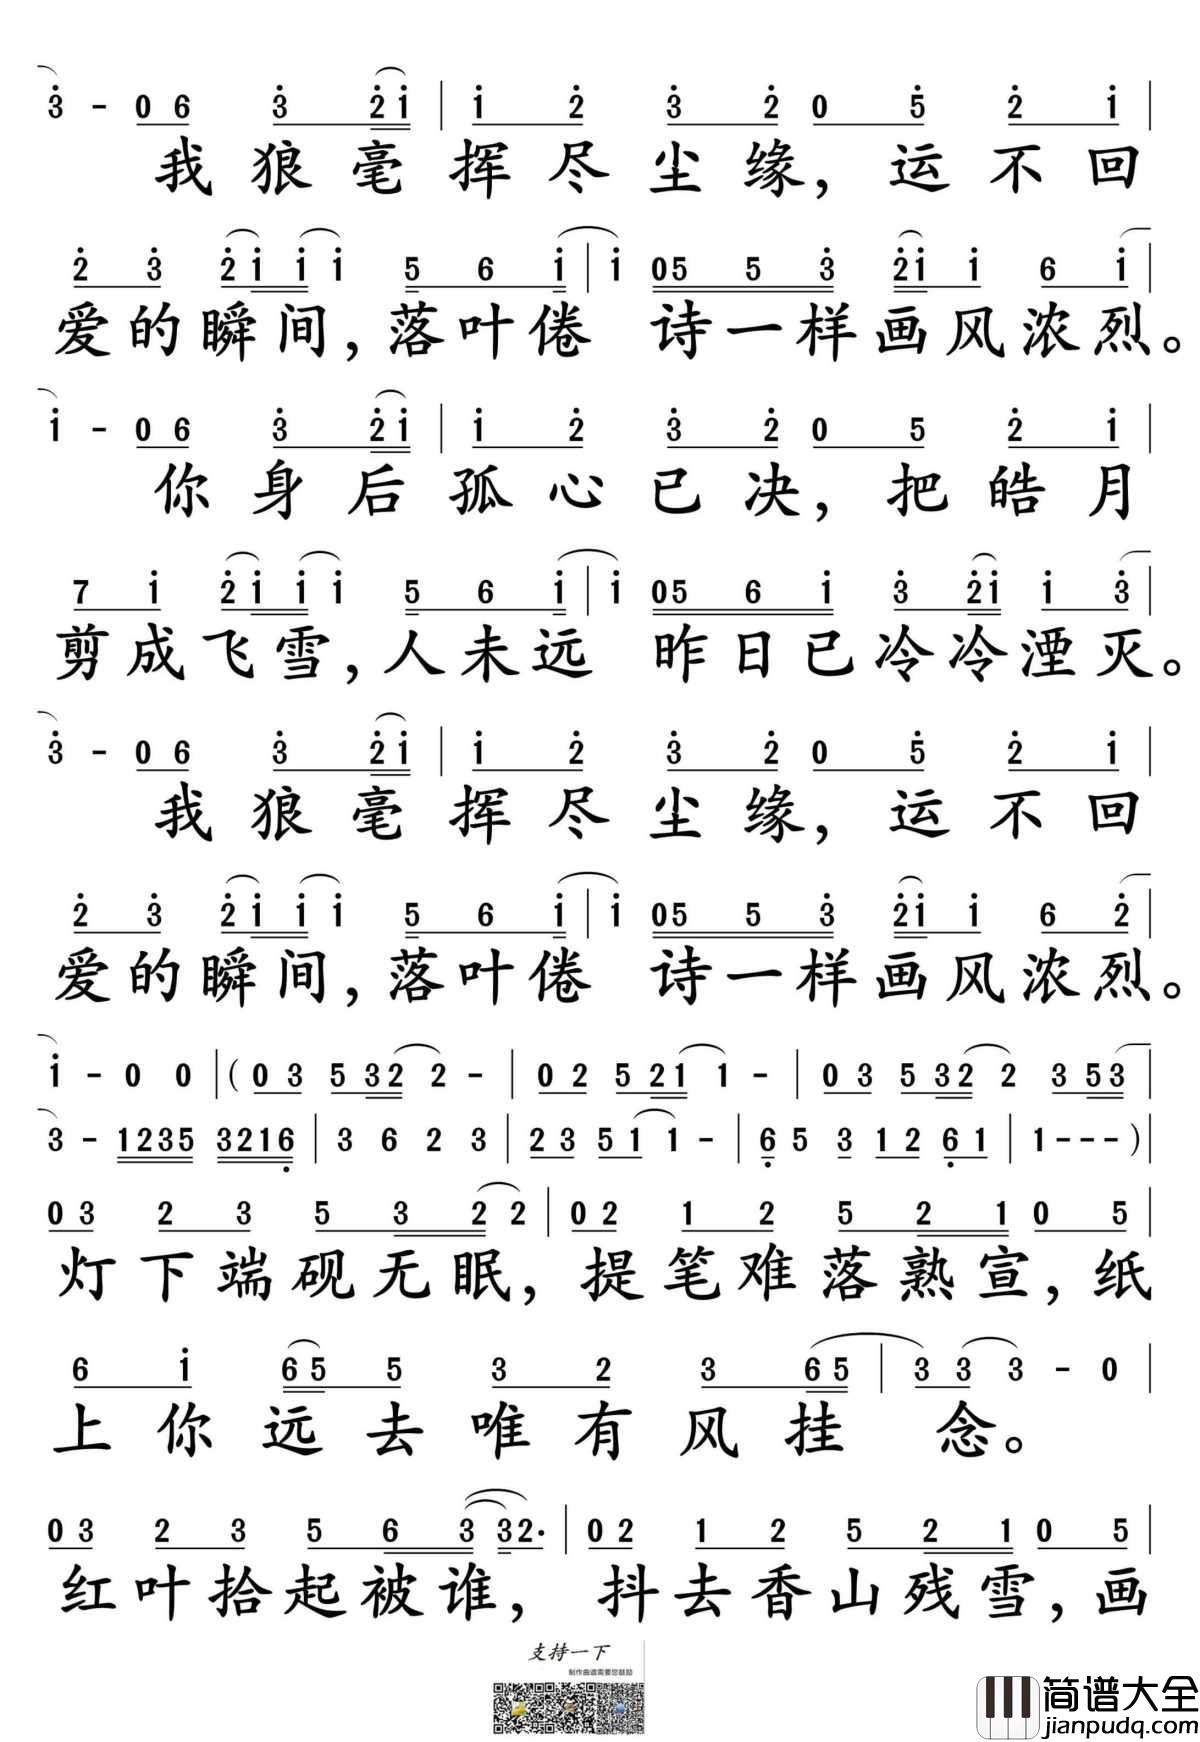 3̇ - 0 6 3̇ 2̇ 1̇ | 1̇ 2̇ 3̇ 2̇ 0 5̇ 2̇ 1̇ |
我狼毫挥尽尘缘，运不回
2̇ 3̇ 2̇ 1̇ 1̇ 1̇ 5 6 1̇ | 1̇ 0 5 5 3̇ 2̇ 1̇ 1̇ 6 1̇ |
爱的瞬间，落叶倦 诗一样画风浓烈。
1̇ - 0 6 3̇ 2̇ 1̇ | 1̇ 2̇ 3̇ 2̇ 0 5 2̇ 1̇ |
你身后孤心已决，把皓月
7 1̇ 2̇ 1̇ 1̇ 1̇ 5 6 1̇ | 1̇ 0 5 6 1̇ 3̇ 2̇ 1̇ 1̇ 3̇ |
剪成飞雪，人未远 昨日已冷冷湮灭。
3̇ - 0 6 3̇ 2̇ 1̇ | 1̇ 2̇ 3̇ 2̇ 0 5̇ 2̇ 1̇ |
我狼毫挥尽尘缘，运不回
2̇ 3̇ 2̇ 1̇ 1̇ 1̇ 5 6 1̇ | 1̇ 0 5 5 3̇ 2̇ 1̇ 1̇ 6 2̇ |
爱的瞬间，落叶倦 诗一样画风浓烈。
1̇ - 0 0 | ( 0 3 5 3 2 2 - | 0 2 5 2 1 1 - | 0 3 5 3 2 2 3 5 3 |
3 - 1 2 3 5 3 2 1 6̣ | 3 6 2 3 | 2 3 5 1 1 - | 6̣ 5 3 1 2 6̣ 1 | 1 - - - ) |
0 3 2 3 5 3 2 2 | 0 2 1 2 5 2 1 0 5 |
灯下端砚无眠，提笔难落熟宣，纸
6 1̇ 6 5 5 3 2 3 6 5 | 3 3 3 - 0 |
上你远去唯有风挂 念。
0 3 2 3 5 6 3 3 2 · | 0 2 1 2 5 2 1 0 5 |
红叶拾起被谁，抖去香山残雪，画
支持一下
制作曲谱需要您鼓励
简谱大全
jianpudq.com